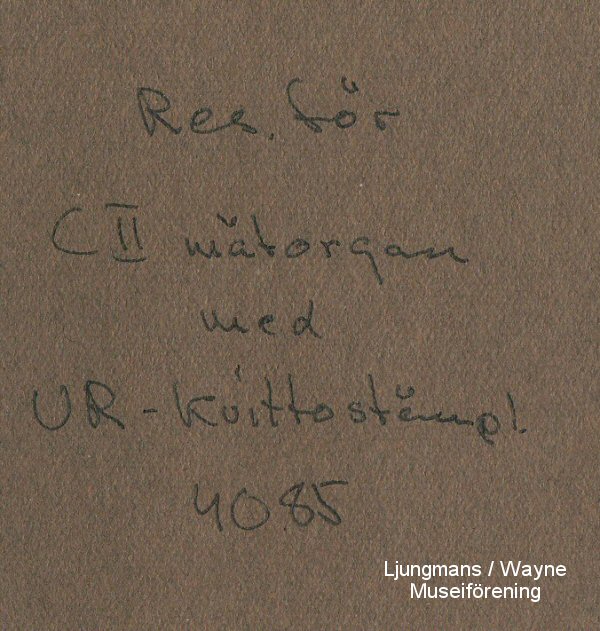 Res. för
C II mätorgan
med
UR-Kvittostämpl.
4085
Ljungmans / Wayne
Museiförening